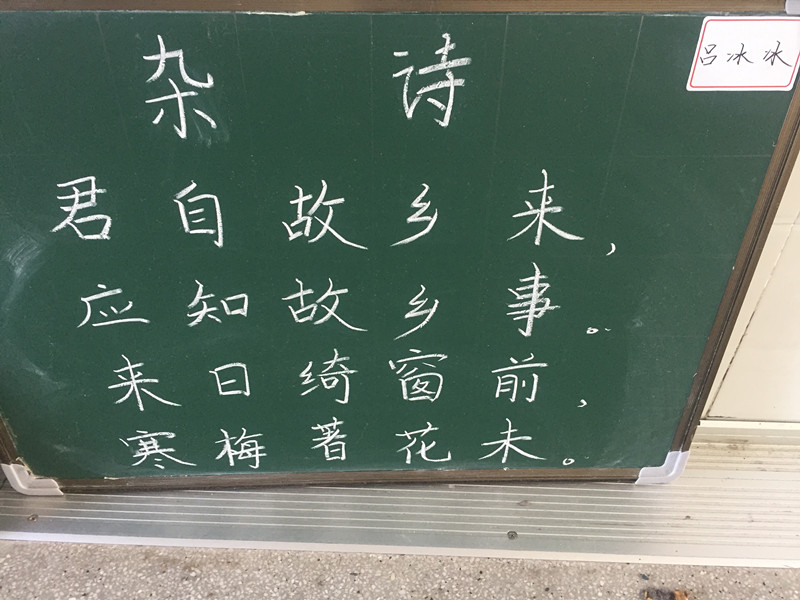 杂 诗
吕冰冰
君自故乡来,
应知故乡事。
来日绮窗前,
寒梅著花未。